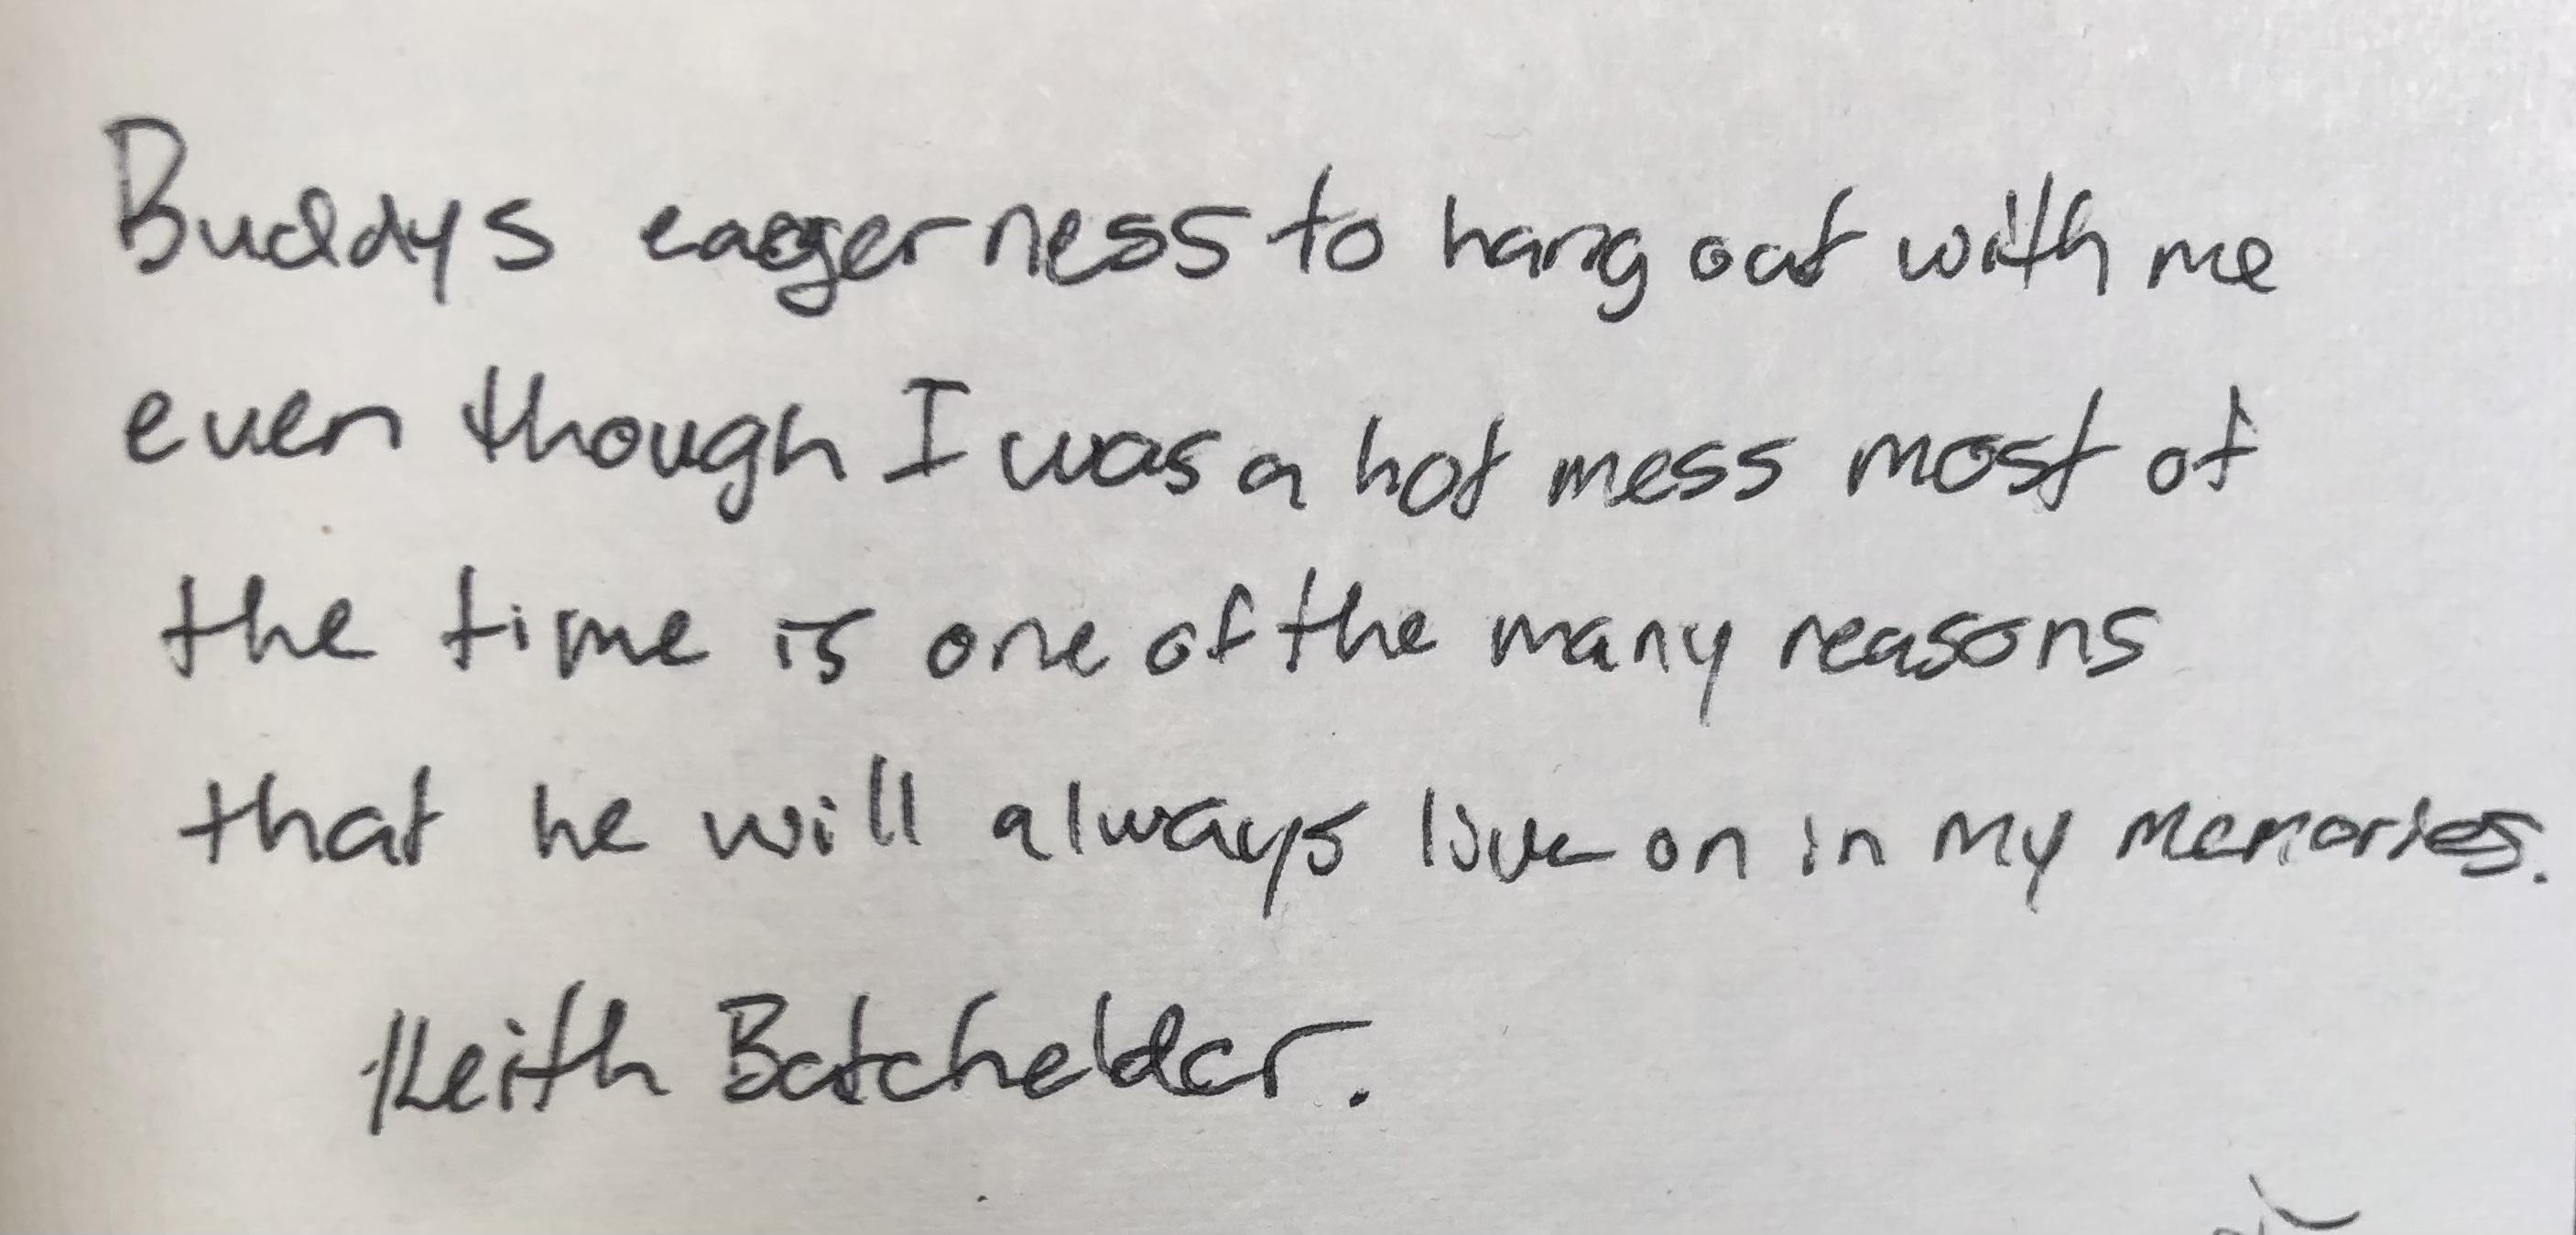 Buddys eagerness to hang out with me
even though I was a hot mess most of
the time is one of the many reasons
that he will always live on in my memories.
Keith Batchelder.